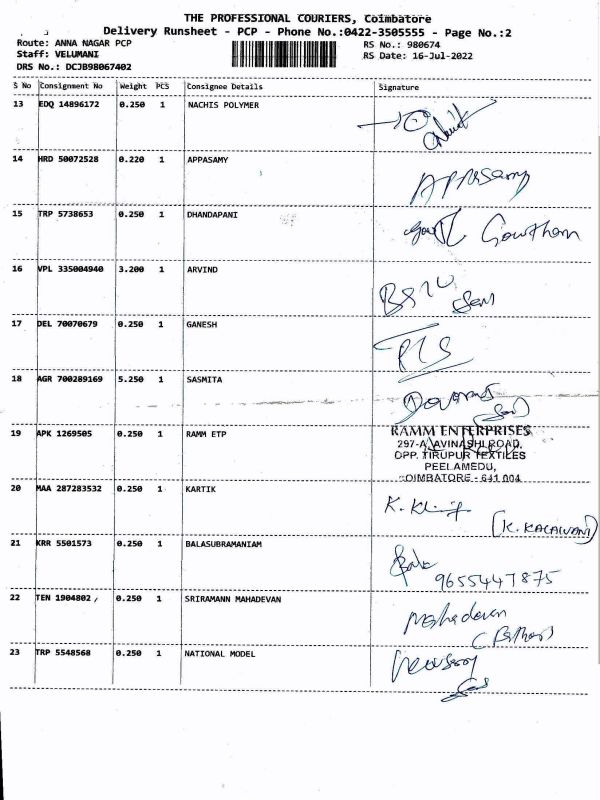 THE PROFESSIONAL COURIERS, Coimbatore
Delivery Runsheet - PCP - Phone No.:0422-3505555 - Page No.:2
Route: ANNA NAGAR PCP RS No.: 980674
Staff: VELUMANI RS Date: 16-Jul-2022
DRS No.: DCJB98067402
S No Consignment No Weight PCS Consignee Details Signature
13 EDQ 14896172 0.250 1 NACHIS POLYMER
14 HRD 50072528 0.220 1 APPASAMY Appasamy
15 TRP 5738653 0.250 1 DHANDAPANI Gowtham
16 VPL 335004940 3.200 1 ARVIND
17 DEL 70070679 0.250 1 GANESH
18 AGR 700289169 5.250 1 SASMITA
19 APK 1269505 0.250 1 RAMM ETP RAMM ENTERPRISES
297-A, AVINASHI ROAD,
OPP. TIRUPUR TEXTILES
PEELAMEDU,
COIMBATORE - 641 004
20 MAA 287283532 0.250 1 KARTIK K.
(K. KALAIVANI)
21 KRR 5501573 0.250 1 BALASUBRAMANIAM Bala
9655447875
22 TEN 1904802, 0.250 1 SRIRAMANN MAHADEVAN Mahadevan
23 TRP 5548568 0.250 1 NATIONAL MODEL